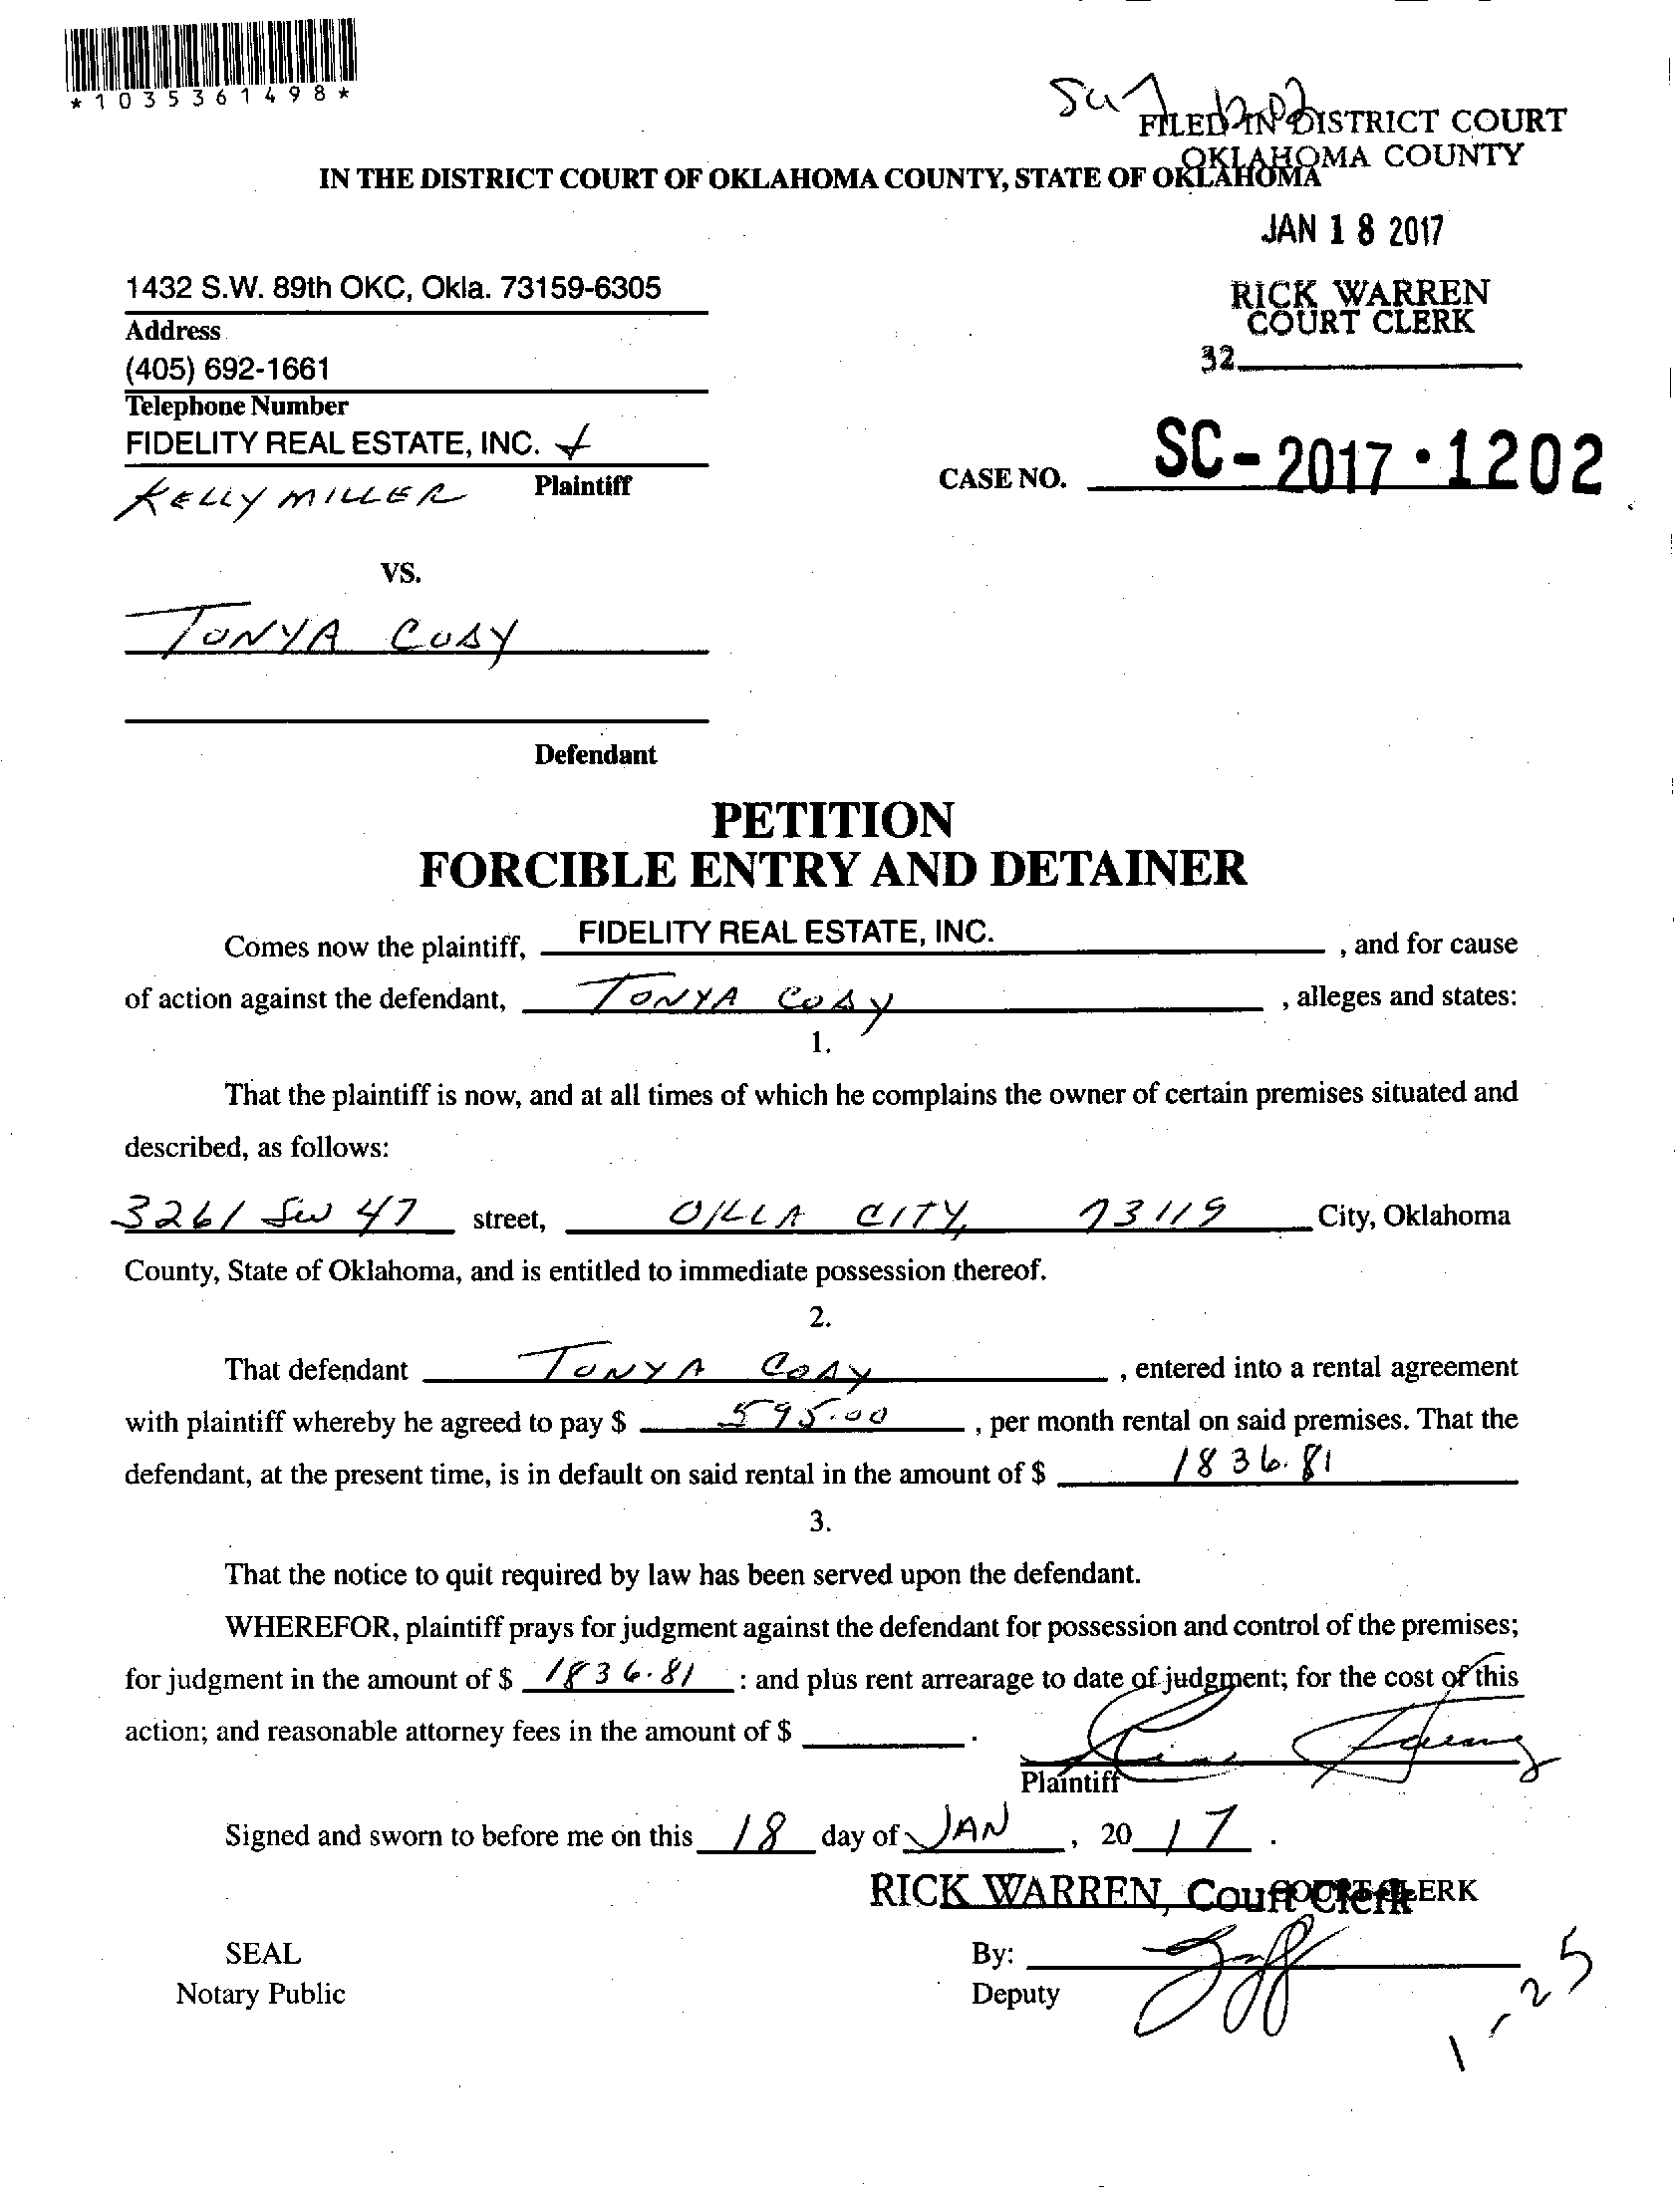 *1035361498*
FILED IN DISTRICT COURT
OKLAHOMA COUNTY
IN THE DISTRICT COURT OF OKLAHOMA COUNTY, STATE OF OKLAHOMA
JAN 18 2017
1432 S.W. 89th OKC, Okla. 73159-6305
RICK WARREN
COURT CLERK
Address
32
(405) 692-1661
Telephone Number
FIDELITY REAL ESTATE, INC.
Plaintiff
KELLY MILLER
CASE NO. SC-2017·1202
VS.
TONYA
Defendant
PETITION
FORCIBLE ENTRY AND DETAINER
Comes now the plaintiff, FIDELITY REAL ESTATE, INC. , and for cause
of action against the defendant, TONYA , alleges and states:
1.
That the plaintiff is now, and at all times of which he complains the owner of certain premises situated and
described, as follows:
3261 SW 47 street, OKLA CITY, 73119 City, Oklahoma
County, State of Oklahoma, and is entitled to immediate possession thereof.
2.
That defendant TONYA , entered into a rental agreement
with plaintiff whereby he agreed to pay $ 595.00 , per month rental on said premises. That the
defendant, at the present time, is in default on said rental in the amount of $ 1836.81
3.
That the notice to quit required by law has been served upon the defendant.
WHEREFOR, plaintiff prays for judgment against the defendant for possession and control of the premises;
for judgment in the amount of $ 1836.81 : and plus rent arrearage to date of judgment; for the cost of this
action; and reasonable attorney fees in the amount of $ .
Plaintiff
Signed and sworn to before me on this 18 day of JAN , 20 17 .
RICK WARREN, Court Clerk COURT CLERK
SEAL
By:
Notary Public
Deputy
1-25